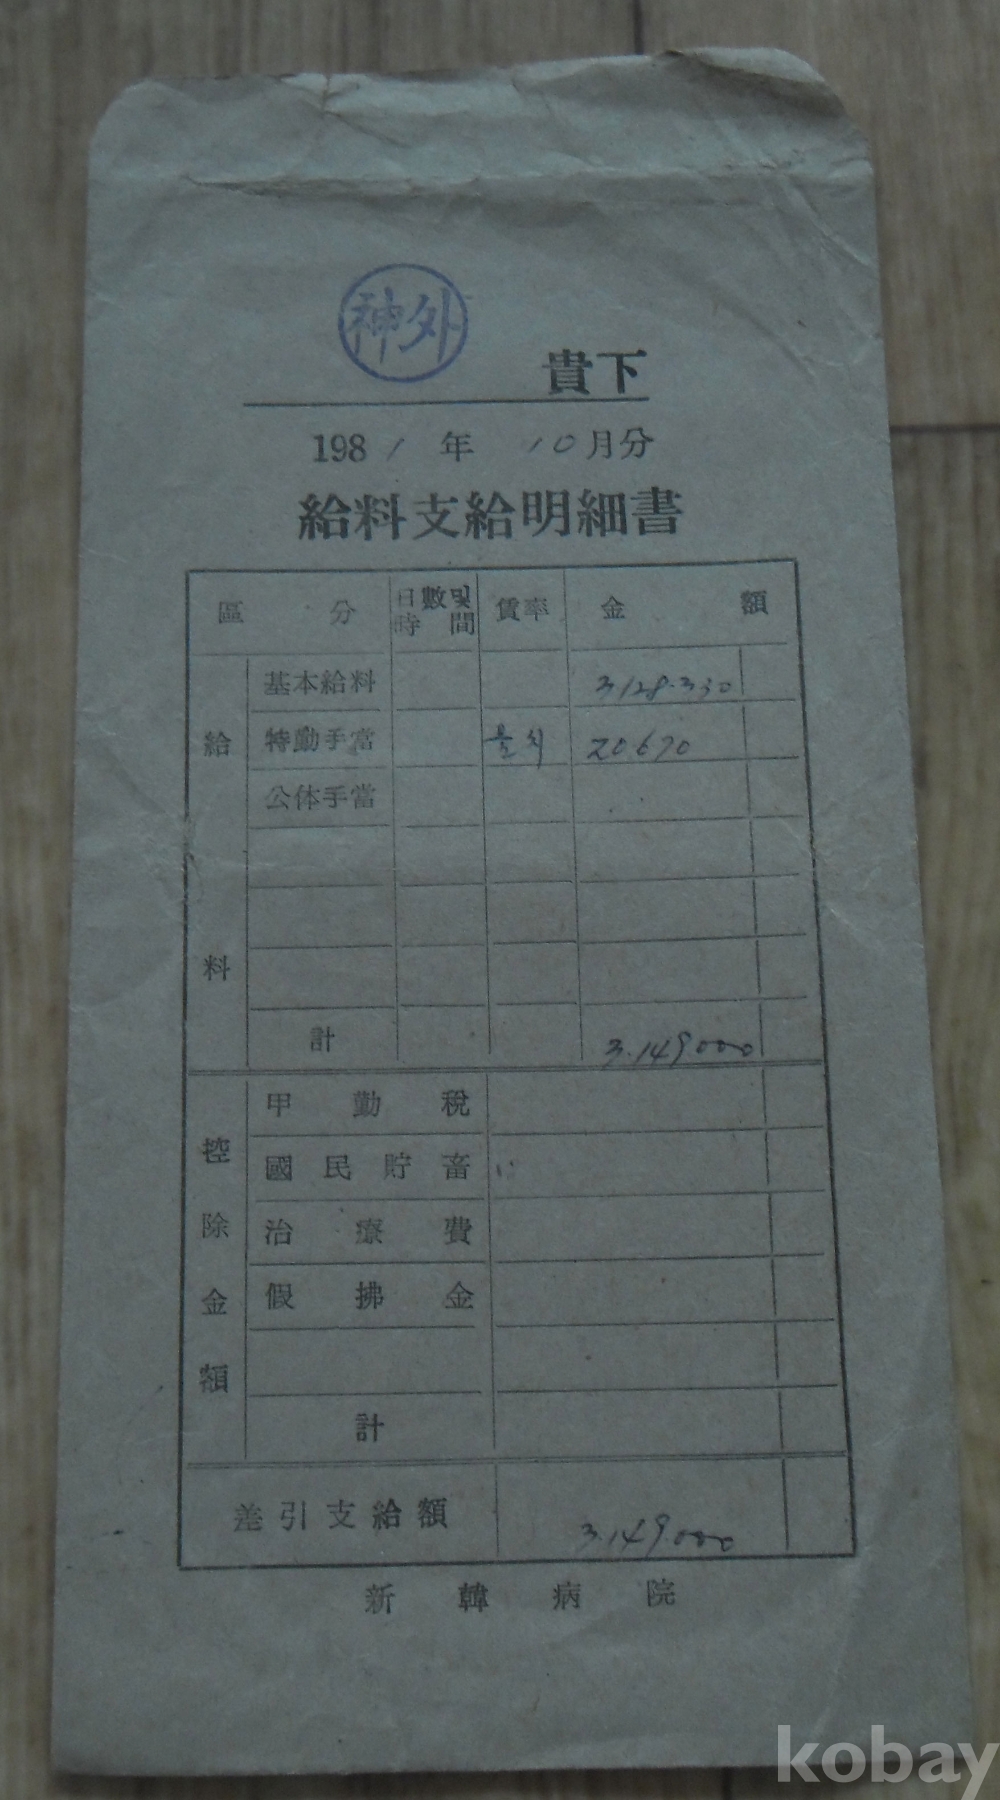 神外
貴下
1981年 10月分
給料支給明細書
區 分 日數및時間 賃率 金 額
給料
基本給料 3128.330
特勤手當 20.670
公休手當
計 3.149000
控除金額
甲勤稅
國民貯畜
治療費
假拂金
計
差引支給額 3.149.000
新韓病院
kobay